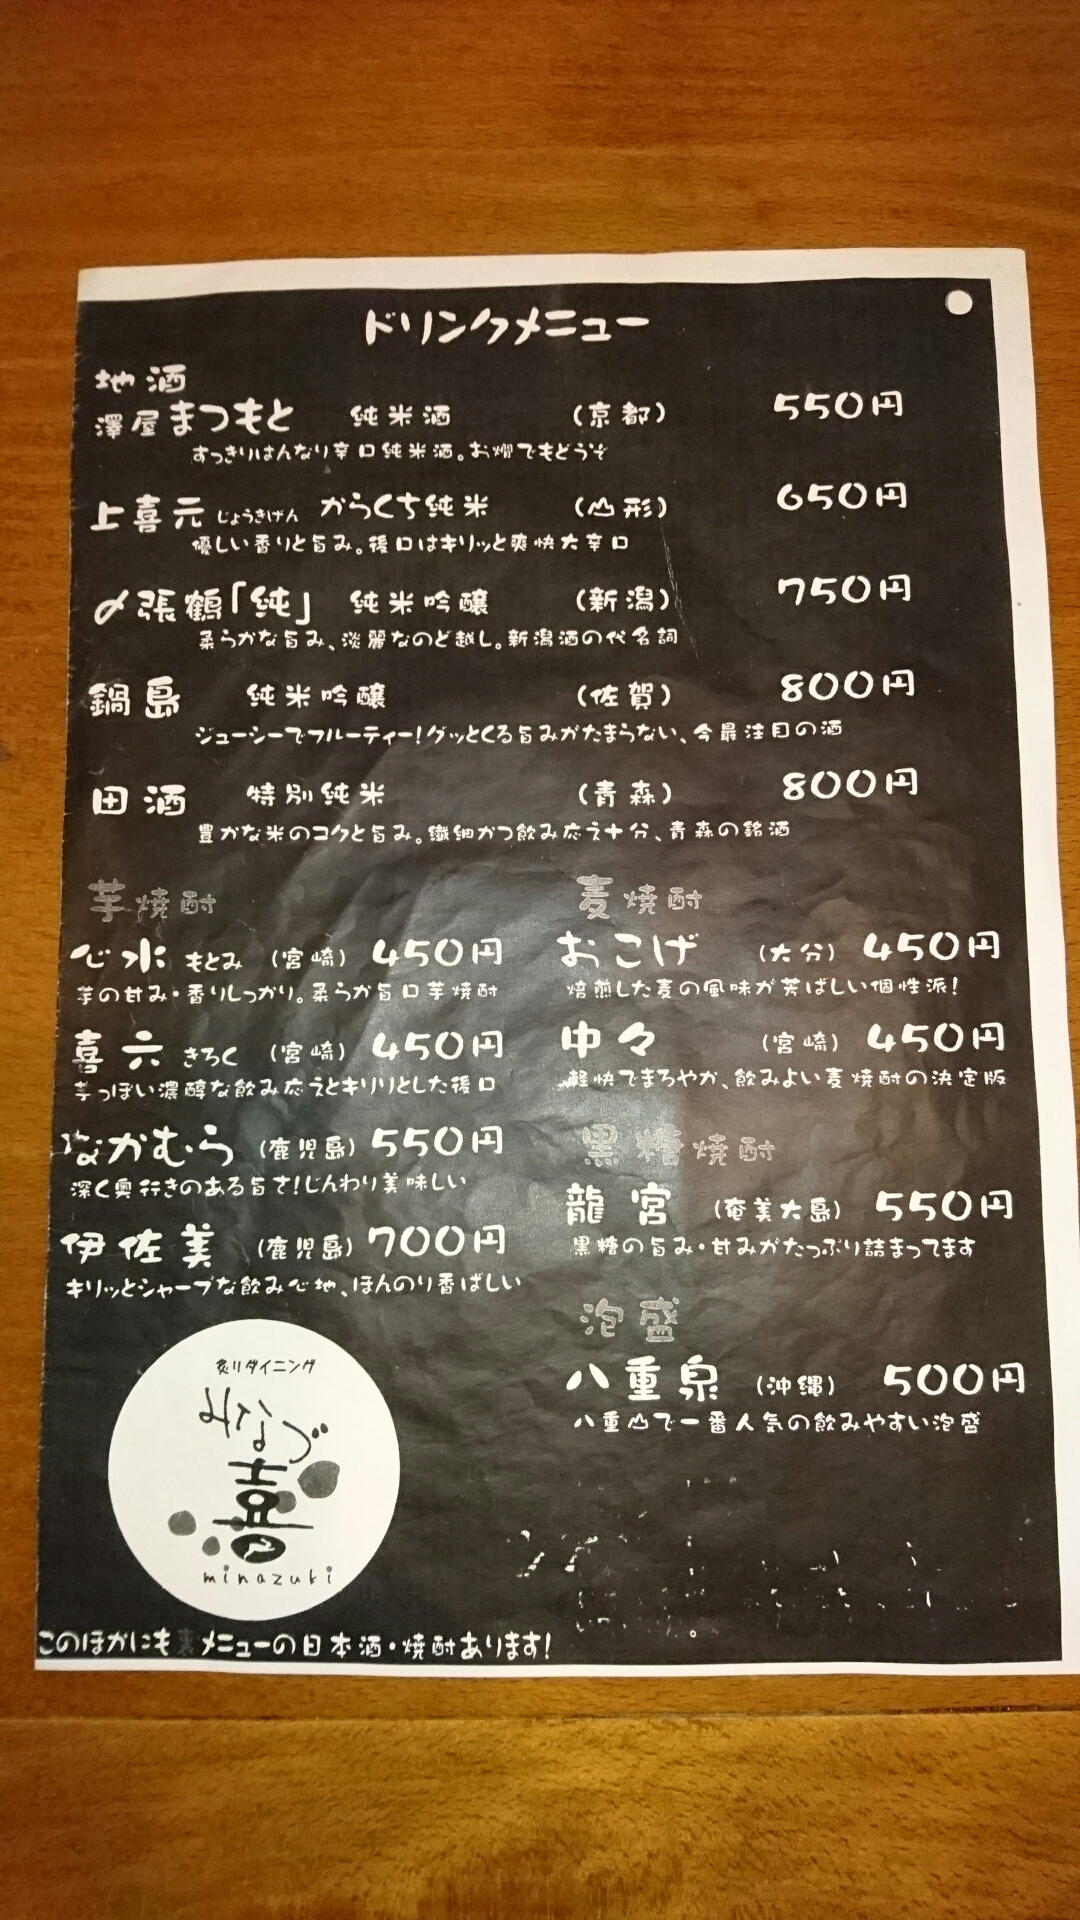 ドリンクメニュー
地酒
澤屋まつもと 純米酒 (京都) 550円
すっきりはんなり辛口純米酒。お燗でもどうぞ
上喜元 じょうきげん からくち純米 (山形) 650円
優しい香りと旨み。後口はキリッと爽快大辛口
〆張鶴「純」 純米吟醸 (新潟) 750円
柔らかな旨み、淡麗なのど越し。新潟酒の代名詞
鍋島 純米吟醸 (佐賀) 800円
ジューシーでフルーティー!グッとくる旨みがたまらない、今最注目の酒
田酒 特別純米 (青森) 800円
豊かな米のコクと旨み。繊細かつ飲み応え十分、青森の銘酒
芋焼酎
心水 もとみ (宮崎) 450円
芋の甘み・香りしっかり。柔らか旨口芋焼酎
喜六 きろく (宮崎) 450円
芋っぽい濃醇な飲み応えとキリリとした後口
なかむら (鹿児島) 550円
深く奥行きのある旨さ!じんわり美味しい
伊佐美 (鹿児島) 700円
キリッとシャープな飲み心地、ほんのり香ばしい
麦焼酎
おこげ (大分) 450円
焙煎した麦の風味が芳ばしい個性派!
中々 (宮崎) 450円
軽快でまろやか、飲みよい麦焼酎の決定版
黒糖焼酎
龍宮 (奄美大島) 550円
黒糖の旨み・甘みがたっぷり詰まってます
泡盛
八重泉 (沖縄) 500円
八重山で一番人気の飲みやすい泡盛
炙りダイニング
みなづ
喜
minazuki
このほかにも裏メニューの日本酒・焼酎あります!